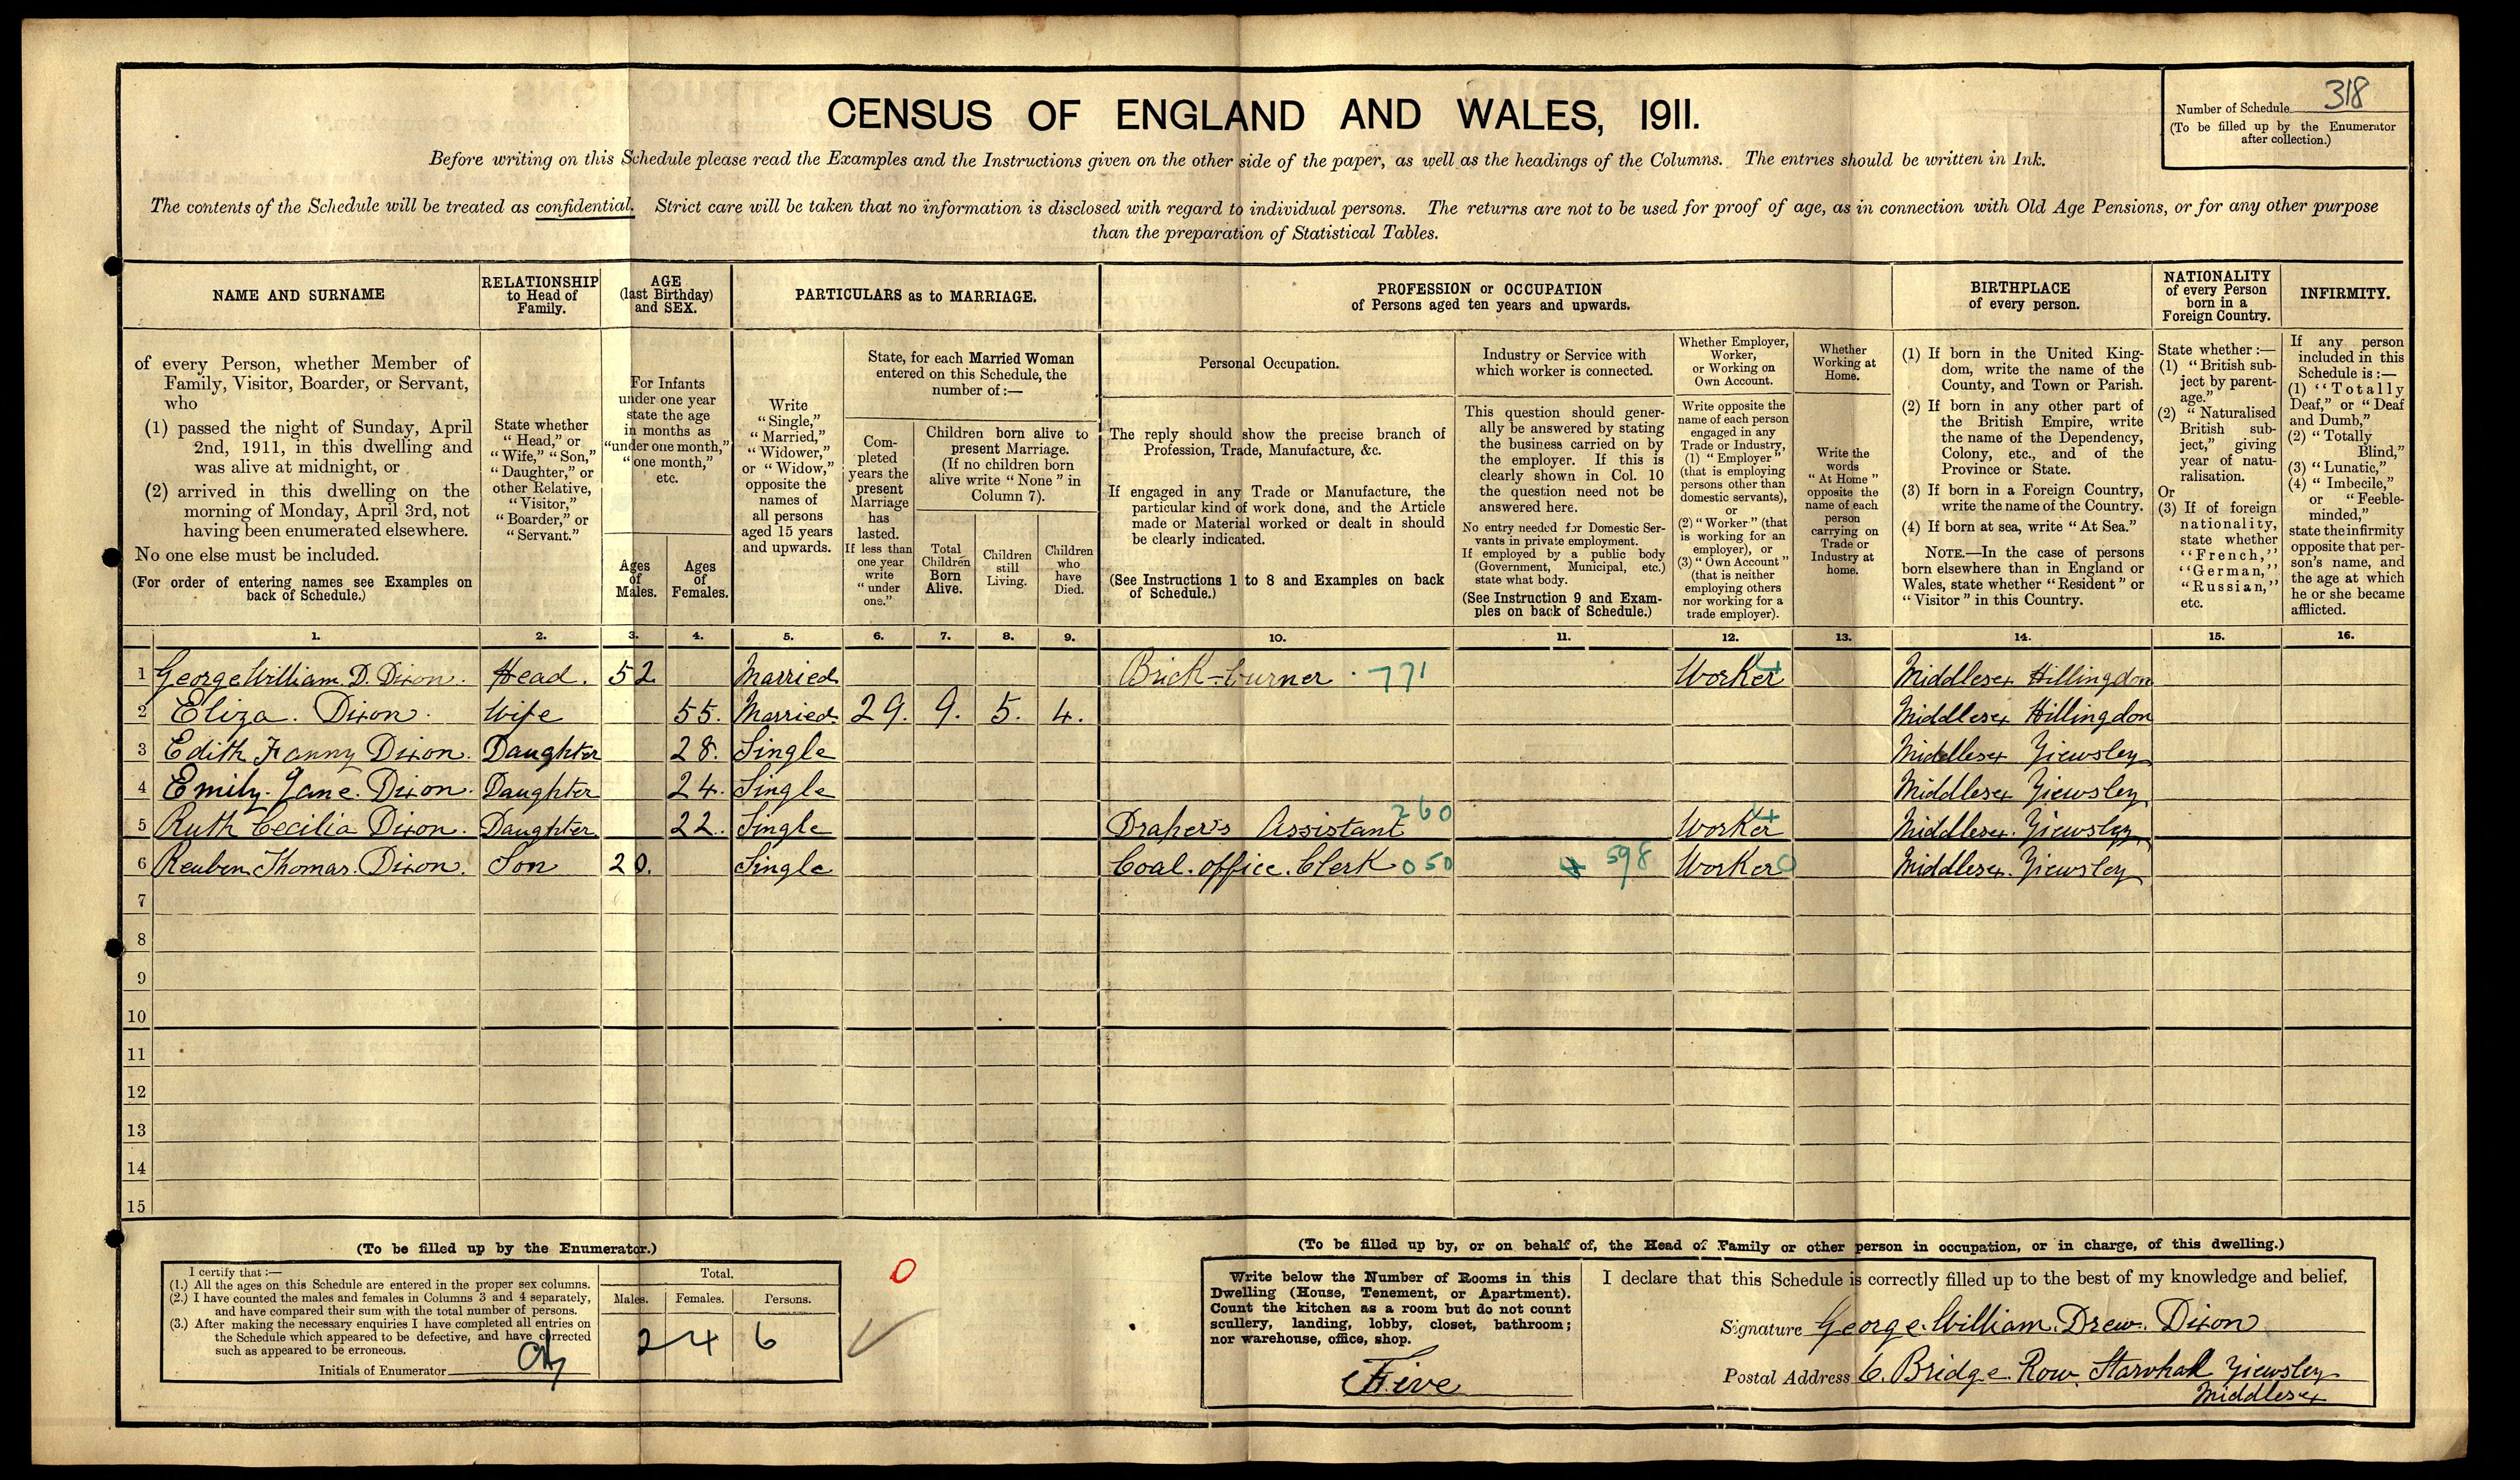 Number of Schedule 318
(To be filled up by the Enumerator
after collection.)
CENSUS OF ENGLAND AND WALES, 1911.
Before writing on this Schedule please read the Examples and the Instructions given on the other side of the paper, as well as the headings of the Columns. The entries should be written in Ink.
The contents of the Schedule will be treated as confidential. Strict care will be taken that no information is disclosed with regard to individual persons. The returns are not to be used for proof of age, as in connection with Old Age Pensions, or for any other purpose
than the preparation of Statistical Tables.
NAME AND SURNAME
of every Person, whether Member of
Family, Visitor, Boarder, or Servant,
who
(1) passed the night of Sunday, April
2nd, 1911, in this dwelling and
was alive at midnight, or
(2) arrived in this dwelling on the
morning of Monday, April 3rd, not
having been enumerated elsewhere.
No one else must be included.
(For order of entering names see Examples on
back of Schedule.)
RELATIONSHIP
to Head of
Family.
State whether
"Head," or
"Wife," "Son,"
"Daughter," or
other Relative,
"Visitor,"
"Boarder," or
"Servant."
AGE
(last Birthday)
and SEX.
For Infants
under one year
state the age
in months as
"under one month,"
"one month,"
etc.
Ages
of
Males.
Ages
of
Females.
PARTICULARS as to MARRIAGE.
Write
"Single,"
"Married,"
"Widower,"
or "Widow,"
opposite the
names of
all persons
aged 15 years
and upwards.
State, for each Married Woman
entered on this Schedule, the
number of:—
Com-
pleted
years the
present
Marriage
has
lasted.
If less than
one year
write
"under
one."
Children born alive to
present Marriage.
(If no children born
alive write "None" in
Column 7).
Total
Children
Born
Alive.
Children
still
Living.
Children
who
have
Died.
PROFESSION or OCCUPATION
of Persons aged ten years and upwards.
Personal Occupation.
The reply should show the precise branch of
Profession, Trade, Manufacture, &c.
If engaged in any Trade or Manufacture, the
particular kind of work done, and the Article
made or Material worked or dealt in should
be clearly indicated.
(See Instructions 1 to 8 and Examples on back
of Schedule.)
Industry or Service with
which worker is connected.
This question should gener-
ally be answered by stating
the business carried on by
the employer. If this is
clearly shown in Col. 10
the question need not be
answered here.
No entry needed for Domestic Ser-
vants in private employment.
If employed by a public body
(Government, Municipal, etc.)
state what body.
(See Instruction 9 and Exam-
ples on back of Schedule.)
Whether Employer,
Worker,
or Working on
Own Account.
Write opposite the
name of each person
engaged in any
Trade or Industry,
(1) "Employer"
(that is employing
persons other than
domestic servants),
or
(2) "Worker" (that
is working for an
employer), or
(3) "Own Account"
(that is neither
employing others
nor working for a
trade employer).
Whether
Working at
Home.
Write the
words
"At Home"
opposite the
name of each
person
carrying on
Trade or
Industry at
home.
BIRTHPLACE
of every person.
(1) If born in the United King-
dom, write the name of the
County, and Town or Parish.
(2) If born in any other part of
the British Empire, write
the name of the Dependency,
Colony, etc., and of the
Province or State.
(3) If born in a Foreign Country,
write the name of the Country.
(4) If born at sea, write "At Sea."
NOTE.—In the case of persons
born elsewhere than in England or
Wales, state whether "Resident" or
"Visitor" in this Country.
NATIONALITY
of every Person
born in a
Foreign Country.
State whether:—
(1) "British sub-
ject by parent-
age."
(2) "Naturalised
British sub-
ject," giving
year of natu-
ralisation.
Or
(3) If of foreign
nationality,
state whether
"French,"
"German,"
"Russian,"
etc.
INFIRMITY.
If any person
included in this
Schedule is:—
(1) "Totally
Deaf," or "Deaf
and Dumb,"
(2) "Totally
Blind,"
(3) "Lunatic,"
(4) "Imbecile,"
or "Feeble-
minded,"
state the infirmity
opposite that per-
son's name, and
the age at which
he or she became
afflicted.
1. 2. 3. 4. 5. 6. 7. 8. 9. 10. 11. 12. 13. 14. 15. 16.
1 George William. D. Dixon. Head. 52 Married Brick-burner 771 Worker 4 Middlesex Hillingdon
2 Eliza. Dixon. Wife 55. Married 29. 9. 5. 4. Middlesex Hillingdon
3 Edith Fanny Dixon. Daughter 28. Single Middlesex Yiewsley
4 Emily. Jane. Dixon. Daughter 24. Single Middlesex Yiewsley
5 Ruth Cecilia Dixon. Daughter 22. Single Draper's Assistant 260 Worker 4 Middlesex. Yiewsley
6 Reuben Thomas. Dixon. Son 20. Single Coal. office. Clerk 050 598 Worker 0 Middlesex. Yiewsley
7
8
9
10
11
12
13
14
15
(To be filled up by the Enumerator.)
I certify that:—
(1.) All the ages on this Schedule are entered in the proper sex columns.
(2.) I have counted the males and females in Columns 3 and 4 separately,
and have compared their sum with the total number of persons.
(3.) After making the necessary enquiries I have completed all entries on
the Schedule which appeared to be defective, and have corrected
such as appeared to be erroneous.
Initials of Enumerator
Total.
Males. Females. Persons.
2 4 6
0
(To be filled up by, or on behalf of, the Head of Family or other person in occupation, or in charge, of this dwelling.)
Write below the Number of Rooms in this
Dwelling (House, Tenement, or Apartment).
Count the kitchen as a room but do not count
scullery, landing, lobby, closet, bathroom;
nor warehouse, office, shop.
Five
I declare that this Schedule is correctly filled up to the best of my knowledge and belief.
Signature George. William. Drew. Dixon
Postal Address 6. Bridge. Row. Yiewsley
Middlesex